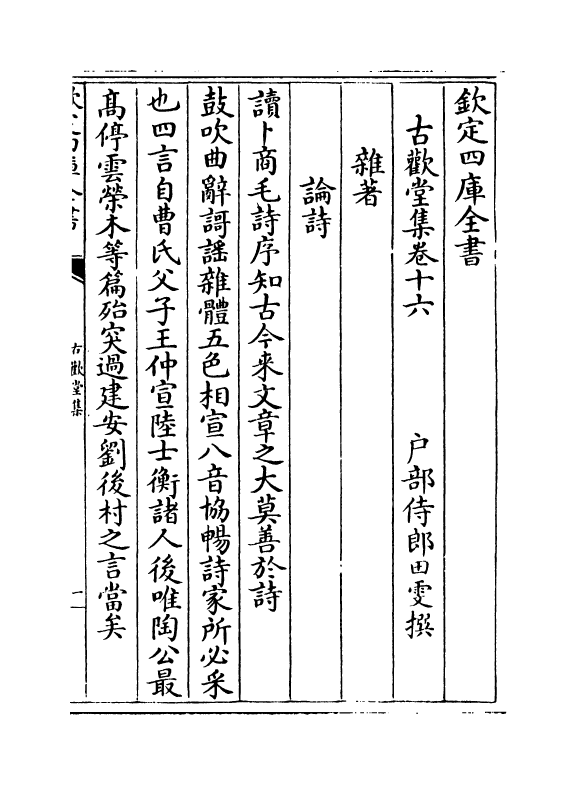 欽定四庫全書
古歡堂集卷十六　戶部侍郎田雯撰
雜著
論詩
讀卜商毛詩序知古今来文章之大莫善於詩
鼓吹曲辭謌謡雜體五色相宣八音協暢詩家所必采
也四言自曹氏父子王仲宣陸士衡諸人後唯陶公最
髙停雲榮木等篇殆突過建安劉後村之言當矣
古歡堂集